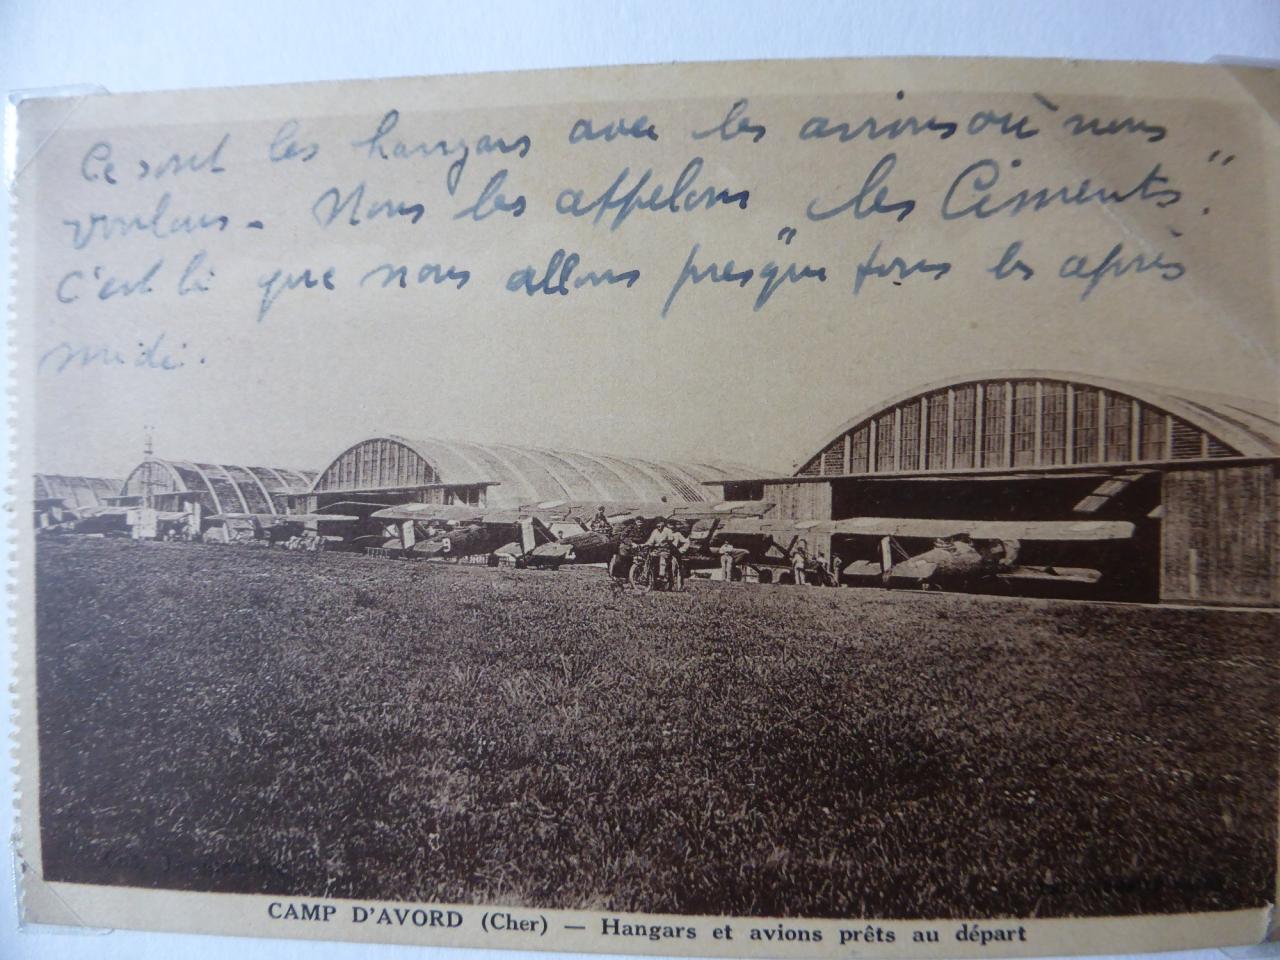 Ce sont les hangars avec les avions où nous
voulons - Nous les appelons "les Ciments".
C'est là que nous allons presque tous les après
midi.
CAMP D'AVORD (Cher) — Hangars et avions prêts au départ